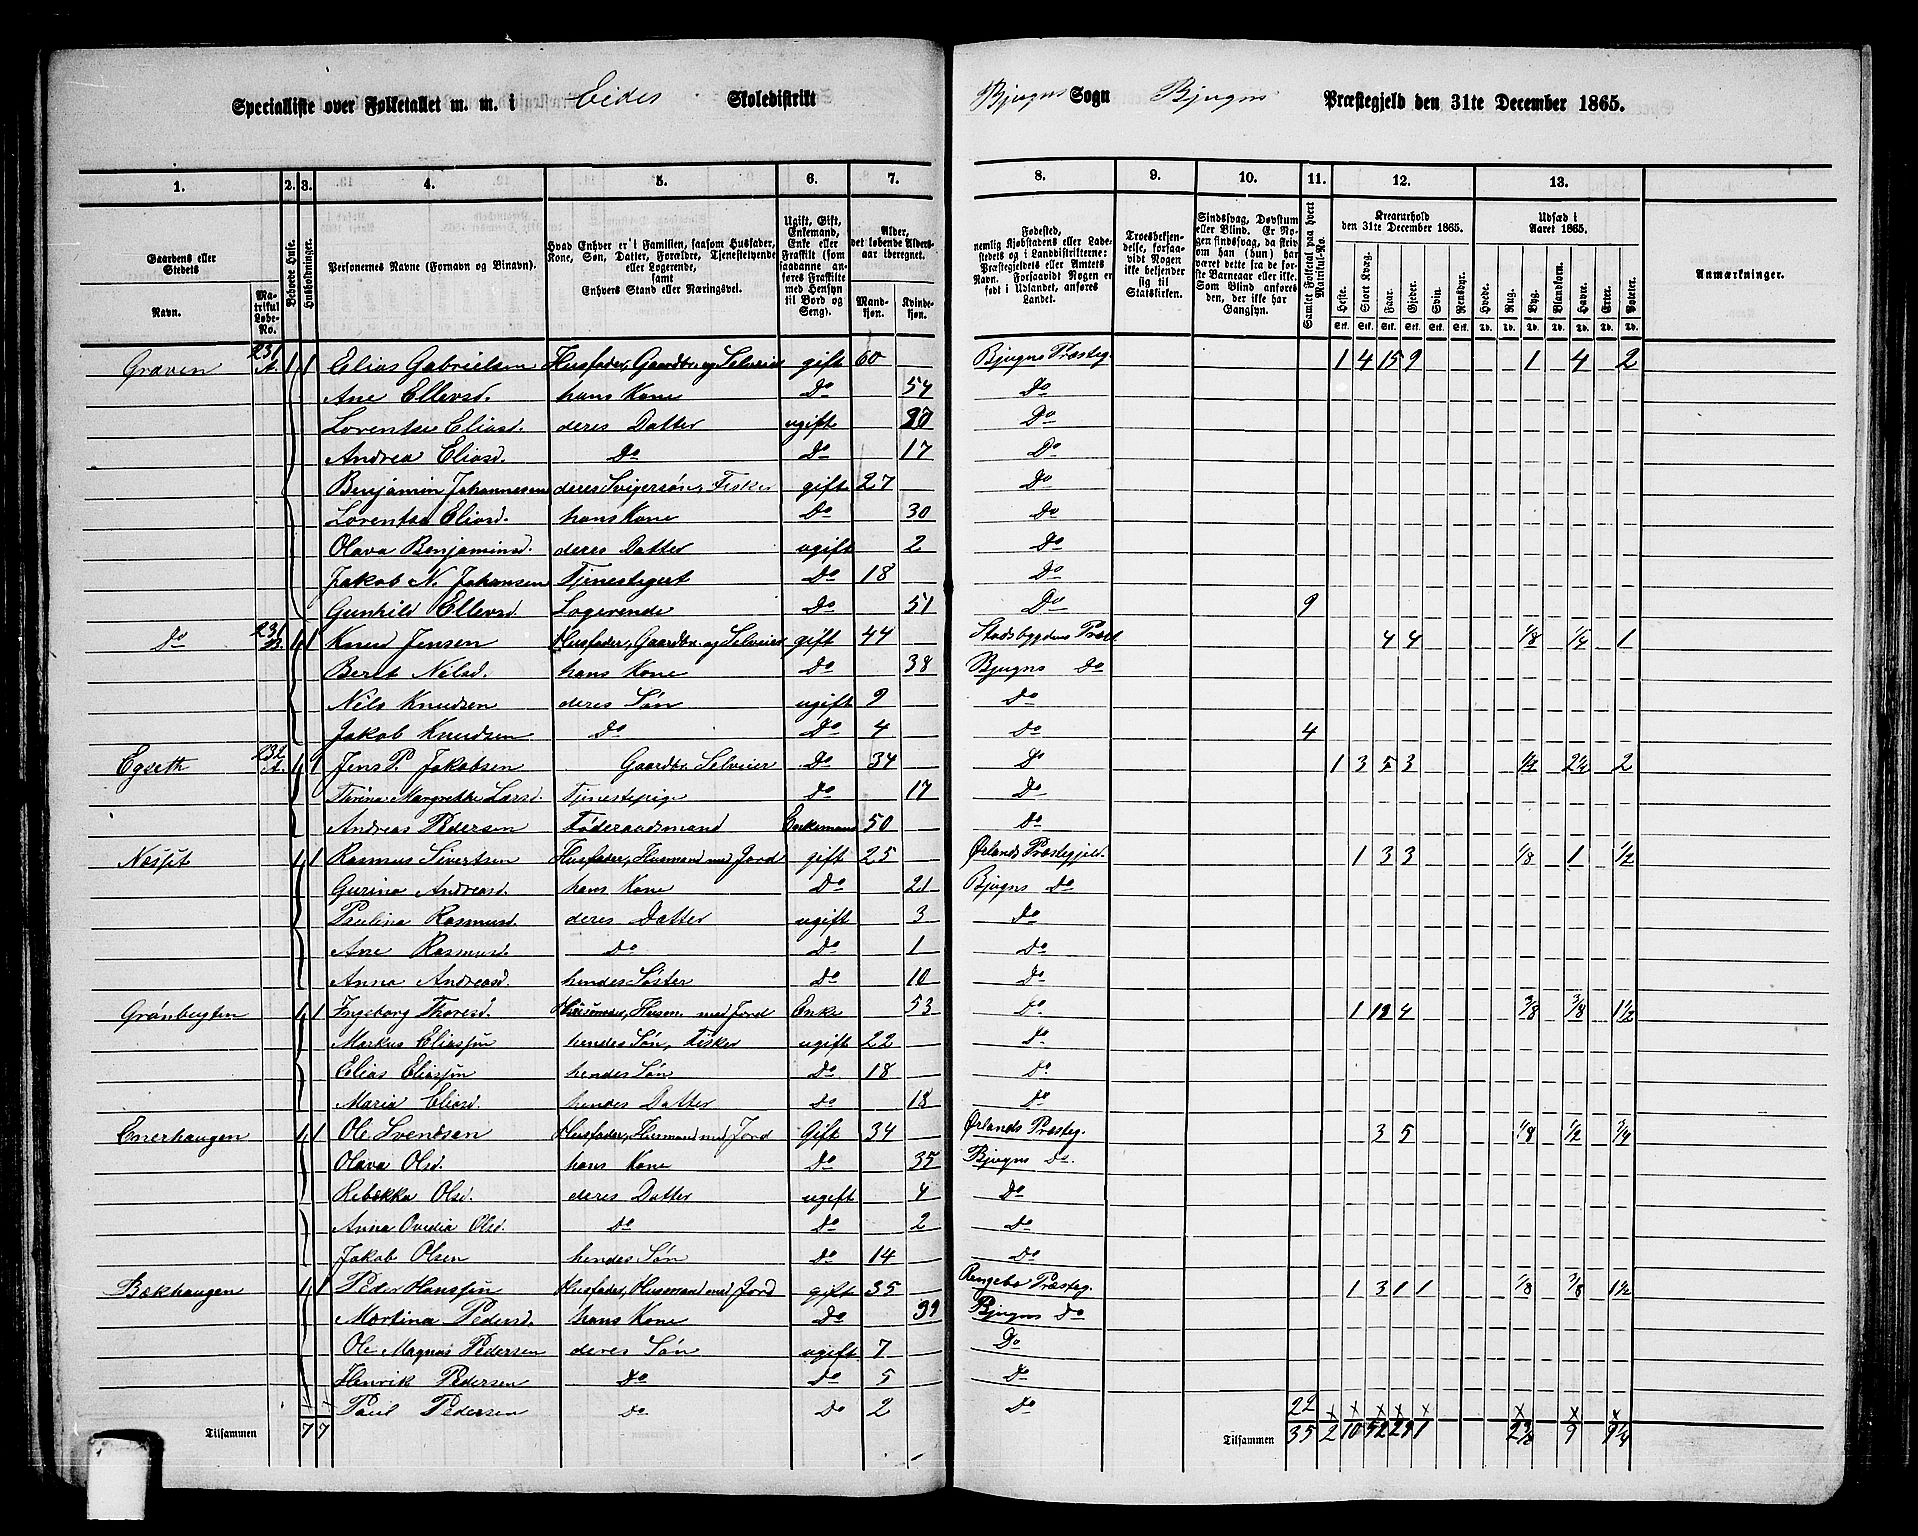 Specialliste over Folketallet m. m. i Eides Skoledistrikt Bjugns Sogn Bjugns Præstegjeld den 31te December 1865.
1. 2. 3. 4. 5. 6. 7. 8. 9. 10. 11. 12. 13.
Gaardens eller Stedets Navn. Matrikul Løbe-No. Beboede Huse. Husholdninger. Personernes Navne (Fornavn og Binavn). Hvad Enhver er i Familien, saasom Husfader, Kone, Søn, Datter, Forældre, Tjenestetyende eller Logerende, samt Enhvers Stand eller Næringsvei. Ugift, Gift, Enkemand, Enke eller Fraskilt (som saadanne anføres Fraskilte med Hensyn til Bord og Seng). Alder, det løbende Alders-aar iberegnet. Mandkjøn. Kvindekjøn. Fødested, nemlig Kjøbstadens eller Ladestedets og i Landdistrikterne: Præstegjeldets eller Amtets Navn. Forsaavidt Nogen er født i Udlandet, anføres Landet. Troesbekjendelse, forsaavidt Nogen ikke bekjender sig til Statskirken. Sindssvag, Døvstum eller Blind. Er Nogen sindssvag, da skrives om han (hun) har været dette fra de første Barneaar eller ikke. Som Blind anføres den, der ikke har Gangsyn. Samlet Folketal paa hvert Matrikul-No. Kreaturhold den 31te December 1865. Heste. Stort Kvæg. Faar. Gjeder. Svin. Rensdyr. Udsæd i Aaret 1865. Hvede. Rug. Byg. Blandkorn. Havre. Erter. Poteter. Anmærkninger.
Graven 231 A. 1 1 Elias Gabrielsen Husfader, Gaardbr. og Selveier gift 60 Bjugns Præsteg. 1 4 15 9 1 4 2
Ane Ellevsd. hans Kone Do 54 Do
Lorentse Eliasd. deres Datter ugift Do
Andrea Eliasd. Do Do 17 Do
Benjamin Johannesen deres Svigersøn, Fisker gift 27 Do
Lorentse Eliasd. hans Kone Do 30 Do
Olava Benjaminsd. deres Datter ugift 2 Do
Jakob N. Johansen Tjenestegut Do 18 Do
Gunhild Ellevsd. Logerende Do 51 Do 9
Do 231 B. 1 1 Knud Jensen Husfader, Gaardbr. og Selveier gift 44 Stadsbygdens Præst 4 4 1/8 1/4 1
Berit Nilsd. hans Kone Do 38 Bjugns Do
Nils Knudsen deres Søn ugift 9 Do
Jakob Knudsen Do Do 4 Do 4
Egseth 232 A. 1 1 Jens P. Jakobsen Gaardbr. Selveier Do 34 Do 1 3 5 3 1/2 2 1/4 2
Thrina Margrethe Larsd. Tjenestepige Do 17 Do
Andreas Pedersen Føderaadsmand Enkemand 50 Do
Næsset 1 1 Rasmus Sivertsen Husfader, Husmand med Jord gift 25 Ørlands Præstegjeld. 1 3 3 1/8 1 1/2
Gurina Andreasd. hans Kone Do 21 Bjugns Do
Paulina Rasmusd. deres Datter ugift 3 Do
Ane Rasmusd. Do Do 1 Do
Anna Andreasd. hendes Søster Do 10 Do
Grønbugten 1 1 Ingeborg Thoresd. Husmoder, Husm. med Jord Enke 53 Do 1 12 4 3/8 3/8 1 1/2
Markus Eliassøn hendes Søn, Fisker ugift 22 Do
Elias Eliassøn hendes Søn Do 18 Do
Maria Eliasd. hendes Datter Do 18 Do
Enerhaugen 1 1 Ole Svendsen Husfader, Husmand med Jord Gift 34 Ørlands Præsteg. 3 5 1/8 1/2 3/4
Olava Olsd. hans Kone Do 35 Bjugns Do.
Rebekka Olsd. deres Datter ugift 4 Do
Anna Ovedia Olsd. Do Do 2 Do
Jakob Olsen hendes Søn Do 14 Do
Bækhaugen 1 1 Peder Hanssøn Husfader, Husmand med Jord gift 35 Rengebo Præsteg. 1 3 1 1 1/8 3/8 1 1/2
Martina Pedersd. hans Kone Do 39 Bjugns Do
Ole Magnus Pedersen deres Søn ugift 7 Do
Henrik Pedersen Do Do 5 Do
Paul Pedersen Do Do 2 Do 22
Tilsammen 7 7 Tilsammen 35 2 10 52 29 1 2 3/8 9 9 1/4